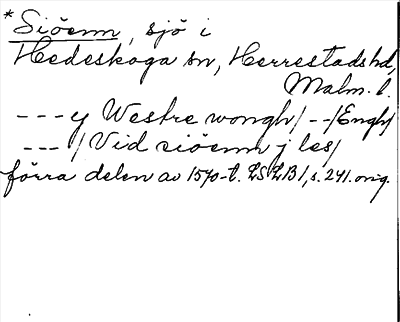 *Siöenn, sjö i
Hedeskoga sn, Herrestads hd,
Malm. l.
--- y Westre wongh/ --/Engh/
--- /Vid siöenn j les/
förra delen av 1570-t. LSLB1, s. 241. orig.